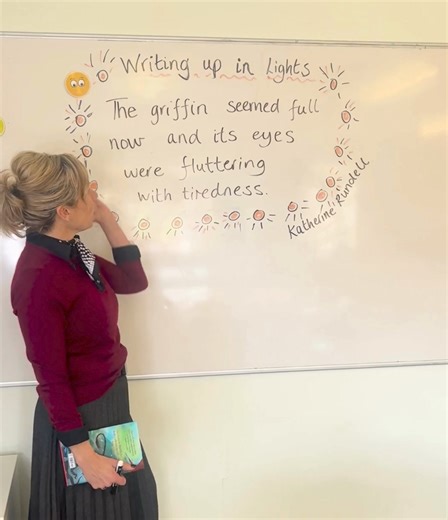 Writing up in Lights
The griffin seemed full
now and its eyes
were fluttering
with tiredness.
Katherine Rundell